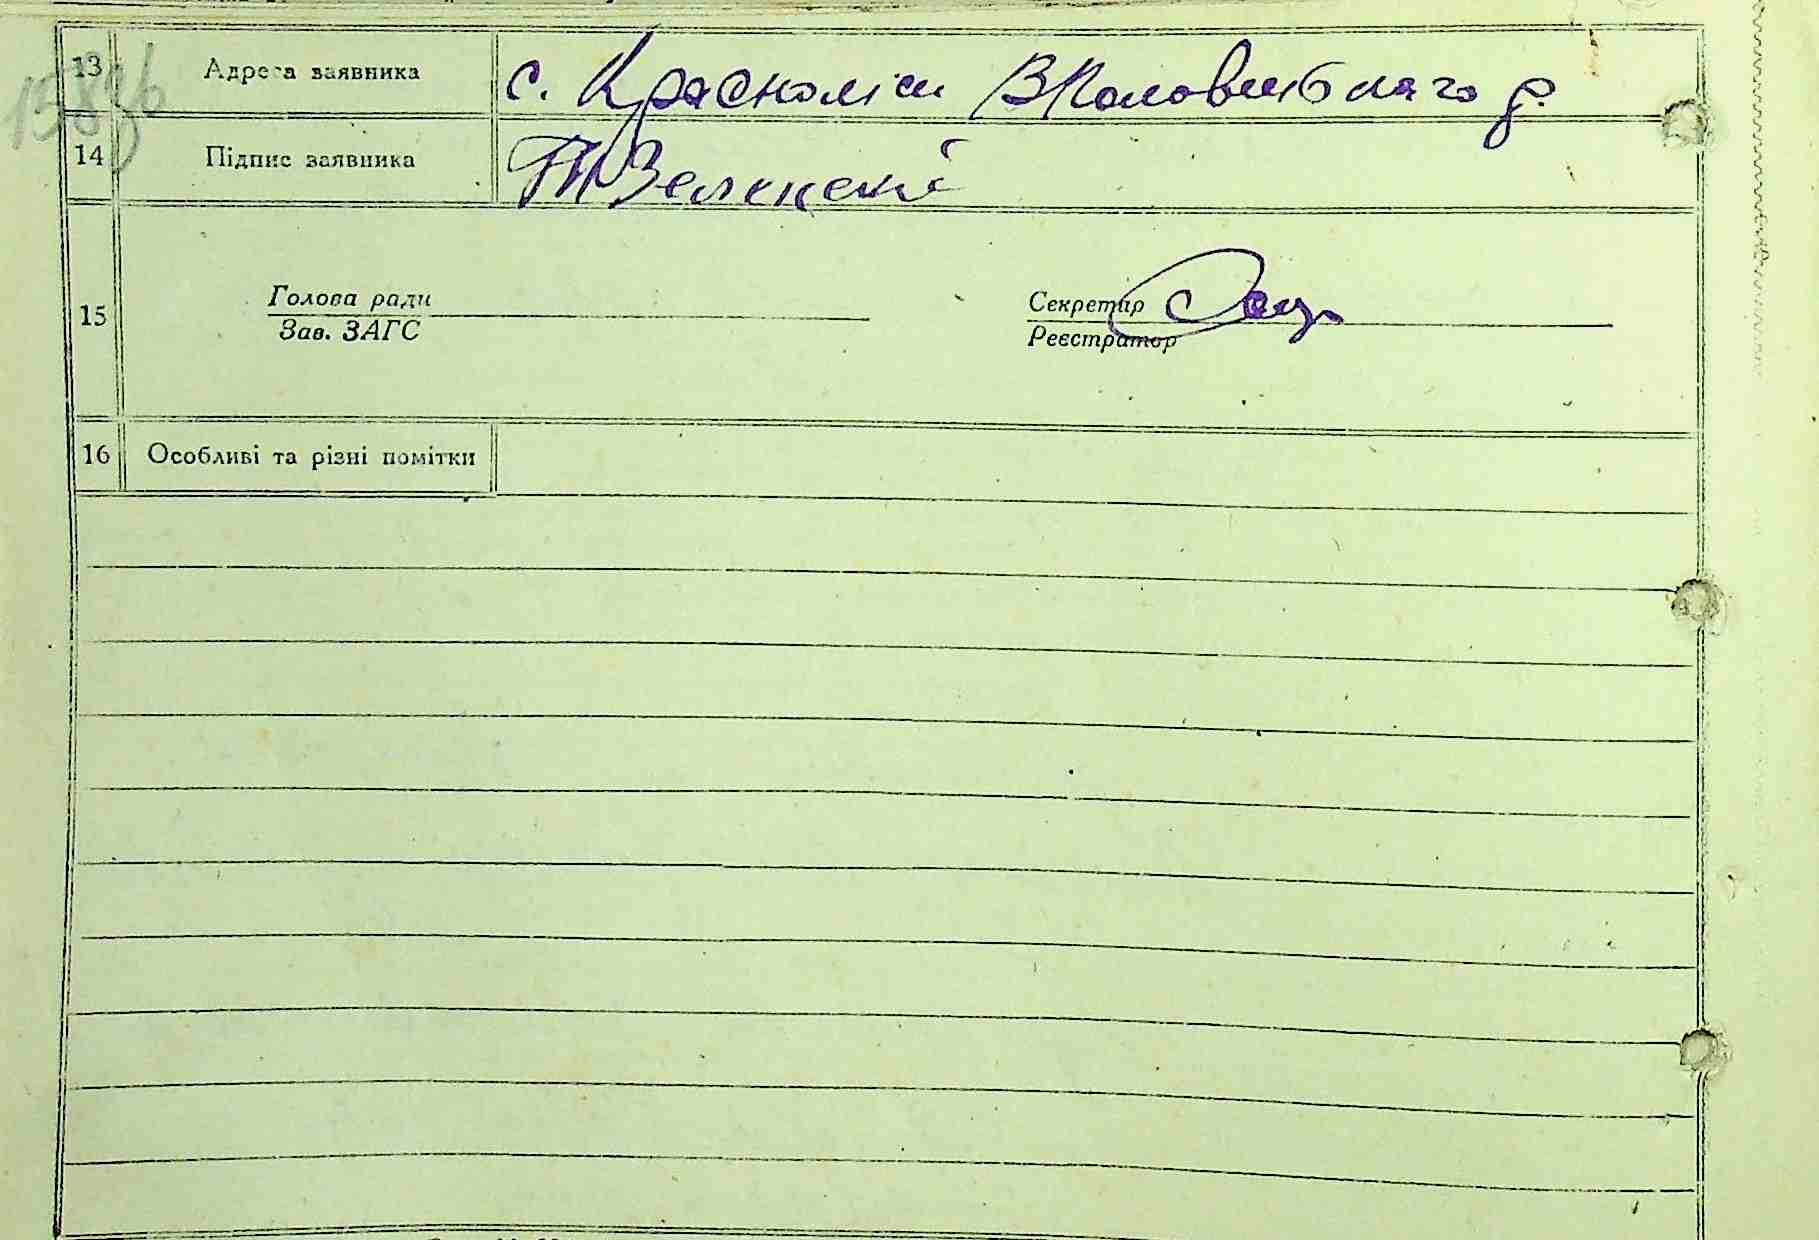 13 Адреса заявника с. Красноліси
14 Підпис заявника Зеленскі
15
Голова ради Секретар
Зав. ЗАГС Реєстратор
16 Особливі та різні помітки